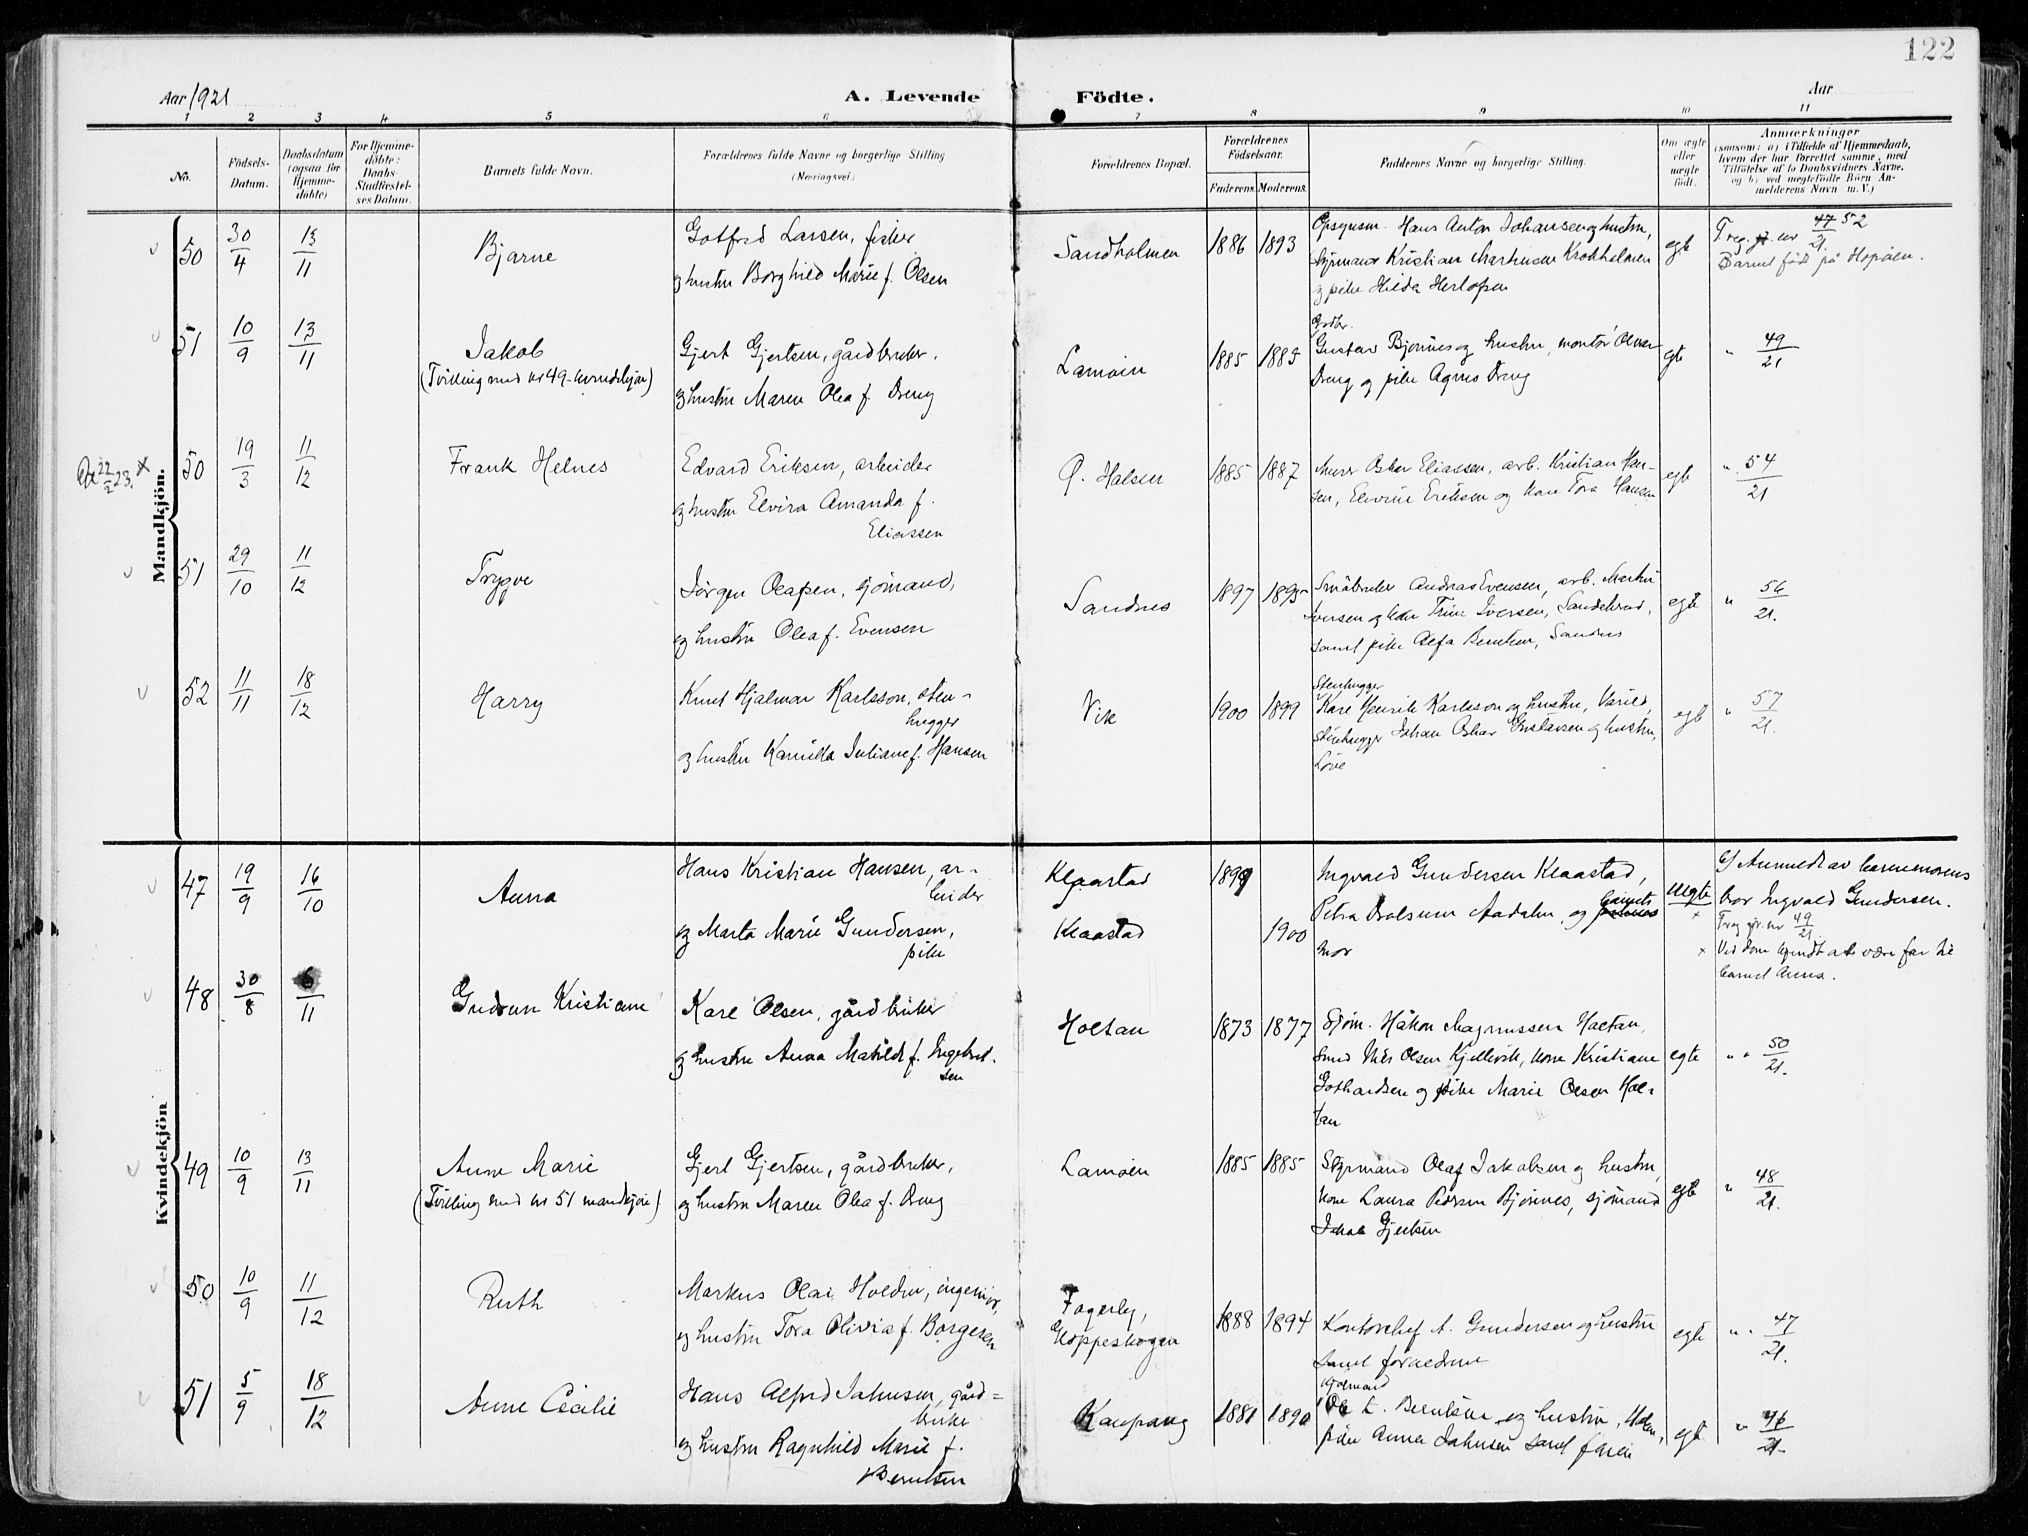 122
Aar 1921
A. Levende
Födte.
Aar
1 2 3 4 5 6 7 8 9 10 11
No.
Födsels-Datum.
Daabsdatum (ogsaa for Hjemmedöbte)
For Hjemmedöbte: Daabs-Stadfæstelses Datum.
Barnets fulde Navn.
Forældrenes fulde Navne og borgerlige Stilling
(Næringsvei.)
Forældrenes Bopæl.
Forældrenes Födselsaar.
Faderens. Moderens.
Faddernes Navne og borgerlige Stilling.
Om ægte eller uægte födt.
Anmærkninger
(saasom: a) i Tilfælde af Hjemmedaab, hvem der har forrettet samme, med Tilföielse af to Daabsvidners Navne, og b) ved uægtefödte Börn Anmelderens Navn m. V.)
Mandkjön.
50 30/4 13/11 Bjarne
Gotfred Larsen, fisker
og hustru Borghild Marie f. Olsen
Sandholmen 1886 1893
Hans Anton Johansen og hustru,
Kristian Markussen Krokholmen
og pike Hilda Herlofsen
egt
T. reg. nr 47 52/21.
Barnet født på Hopøien.
51 10/9 13/11 Jakob
(Tvilling med nr 49 kvindekjøn)
Gjert Gjertsen, gårdbruker,
og hustru Maren Olea f. Dreng
Lamøen 1885 1885
Grdbr.
Gustav Bjønnes og hustru, montør Oluer
Dreng og pike Agnes Dreng
egte " 49/21
22/2 23. x
50 19/3 11/12 Frank Helnes
Edvard Eriksen, arbeider
og hustru Elvira Amanda f.
Eliassen
Ø. Halsen 1885 1887
Murer Oskar Eliassen, arb. Kristian Hansen,
Elvine Eriksen og kone Tora Hansen
egte " 54/21
51 29/10 11/12 Trygve
Jørgen Olafsen, sjømand,
og hustru Olea f. Evensen
Sandnes 1897 1895
Småbruker Andreas Evensen, arb. Martin
Iversen og kone Trine Iversen, Sandekred,
samt pike Alfa Berntsen, Sandnes
egte " 56/21.
52 11/11 18/12 Harry
Knut Hjalmar Karlsson, sten-
hugger
og hustru Kamilla Juliane f. Hansen
Vik 1900 1899
Stenhugger
Karl Henrik Karlsson og hustru, Varild,
stenhugger Johan Oskar Gustavsen og hustru,
Løve
egt " 57/21.
Kvindekjön
47 19/9 16/10 Anna
Hans Kristian Hansen, ar-
beider
og Marta Marie Gundersen,
pike
Klaastad 1899
Klaastad 1900
Ingvald Gundersen Klaastad,
Petra Aadalen, og barnets
mor
uegte
x
b) Anmeldt av barnemorens
bror Ingvald Gundersen.
T. reg. nr 49/21.
x Ved dom kjendt at være far til
barnet Anna.
48 30/8 6/11 Gudrun Kristiane
Karl Olsen, gårdbruker
og hustru Anna Matilde f. Ingebret-
sen
Holtan 1873 1877
Sjøm. Håkon Magnussen Holtan,
smed Nils Olsen Kjellevik, kone Kristiane
Gothardsen og pike Marie Olsen Hol-
tan
egte " " 50/21.
49 10/9 13/11 Anne Marie
(Tvilling med nr 51 mandkjøn)
Gjert Gjertsen, gårdbruker,
og hustru Maren Olea f. Dreng
Lamøen 1885 1885
Styrmand Olaf Jakobsen og hustru,
kone Laura Pedersen Bjønnes, sjømand
Jakob Gjertsen
egte " 48/21.
50 10/9 11/12 Ruth
Markus Olai Holdrer, ingeniør,
og hustru Tora Olivia f. Borgersen
Fagerly,
Gloppeskogen 1888 1894
Kontorchef A. Gundersen og hustru
samt forældrene
egte " " 47/21.
51 5/9 18/12 Anne Cecilie
Hans Alfred Jahnsen, gård-
bruker
og hustru Ragnhild Marie f.
Berntsen
Kaupang 1881 1890
Ole L. Berntsen og hustru,
pike Anna Jahnsen samt faren
egt " 46/21